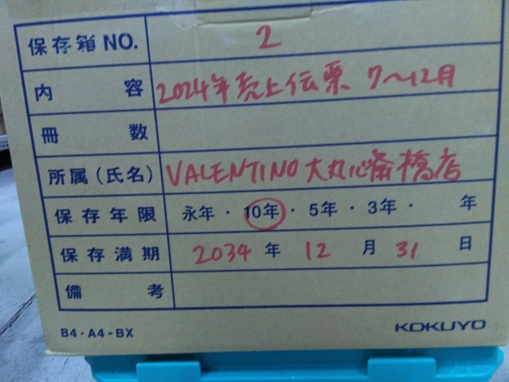 保存箱NO. 2
内容 2024年売上伝票 7~12月
冊数
所属(氏名) VALENTINO 大丸心斎橋店
保存年限 永年・10年・5年・3年・ 年
保存満期 2034年 12月 31日
備考
B4・A4-BX KOKUYO